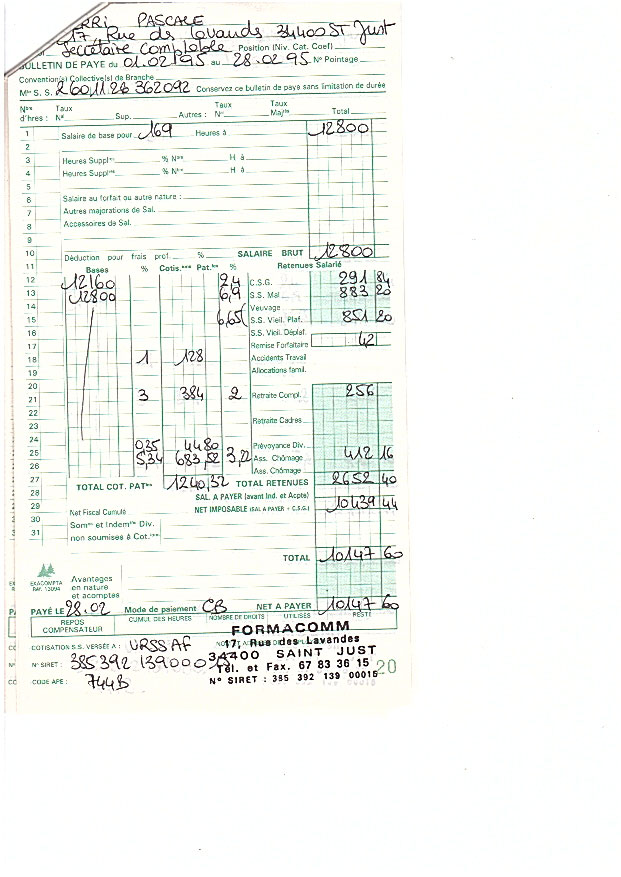 RRI PASCALE
17, Rue des Lavands 34400 ST Just
Secrétaire Comptable Position (Niv. Cat. Coef)
BULLETIN DE PAYE du 01.02/95 au 28.02.95 N° Pointage
Convention(s) Collective(s) de Branche
Mle S. S. 2 60 11 28 362092 Conservez ce bulletin de paye sans limitation de durée
Nbre d'hres : Taux N° Sup. Autres : Taux N° Taux Majté Total
1 Salaire de base pour 169 Heures à 12800
2
3 Heures Supplres % Nbre H à
4 Heures Supplres % Nbre H à
5
6 Salaire au forfait ou autre nature :
7 Autres majorations de Sal.
8 Accessoires de Sal.
9
10 Déduction pour frais prof. % SALAIRE BRUT 12800
11 Bases % Cotis.ons Pat.les % Retenues Salarié
12 12160 2,4 C.S.G. 291 84
13 12800 6,9 S.S. Mal 883 20
14 Veuvage
15 6,65 S.S. Vieil. Plaf. 851 20
16 S.S. Vieil. Déplaf.
17 Remise Forfaitaire 42
18 1 128 Accidents Travail
19 Allocations famil.
20
21 3 384 2 Retraite Compl. 256
22
23 Retraite Cadres
24 0,35 44 80 Prévoyance Div.
25 5,34 683,52 3,22 Ass. Chômage 412 16
26 Ass. Chômage
27 TOTAL COT. PATles 1240,32 TOTAL RETENUES 2652 40
28 SAL. A PAYER (avant Ind. et Acpte)
29 Net Fiscal Cumulé NET IMPOSABLE (SAL A PAYER + C.S.G.) 10439 44
30 Somes et Indemtés Div.
31 non soumises à Cot.ons
TOTAL 10147 60
EXACOMPTA Réf. 13094 Avantages en nature et acomptes
PAYÉ LE 28.02 Mode de paiement CB NET A PAYER 10147 60
REPOS COMPENSATEUR CUMUL DES HEURES NOMBRE DE DROITS UTILISES RESTE
FORMACOMM
COTISATION S.S. VERSÉE A : URSSAF 17, Rue des Lavandes
34400 SAINT JUST
N° SIRET : 385 392 139000 Tél. et Fax. 67 83 36 15 20
N° SIRET : 385 392 139 00015
CODE APE : 744B